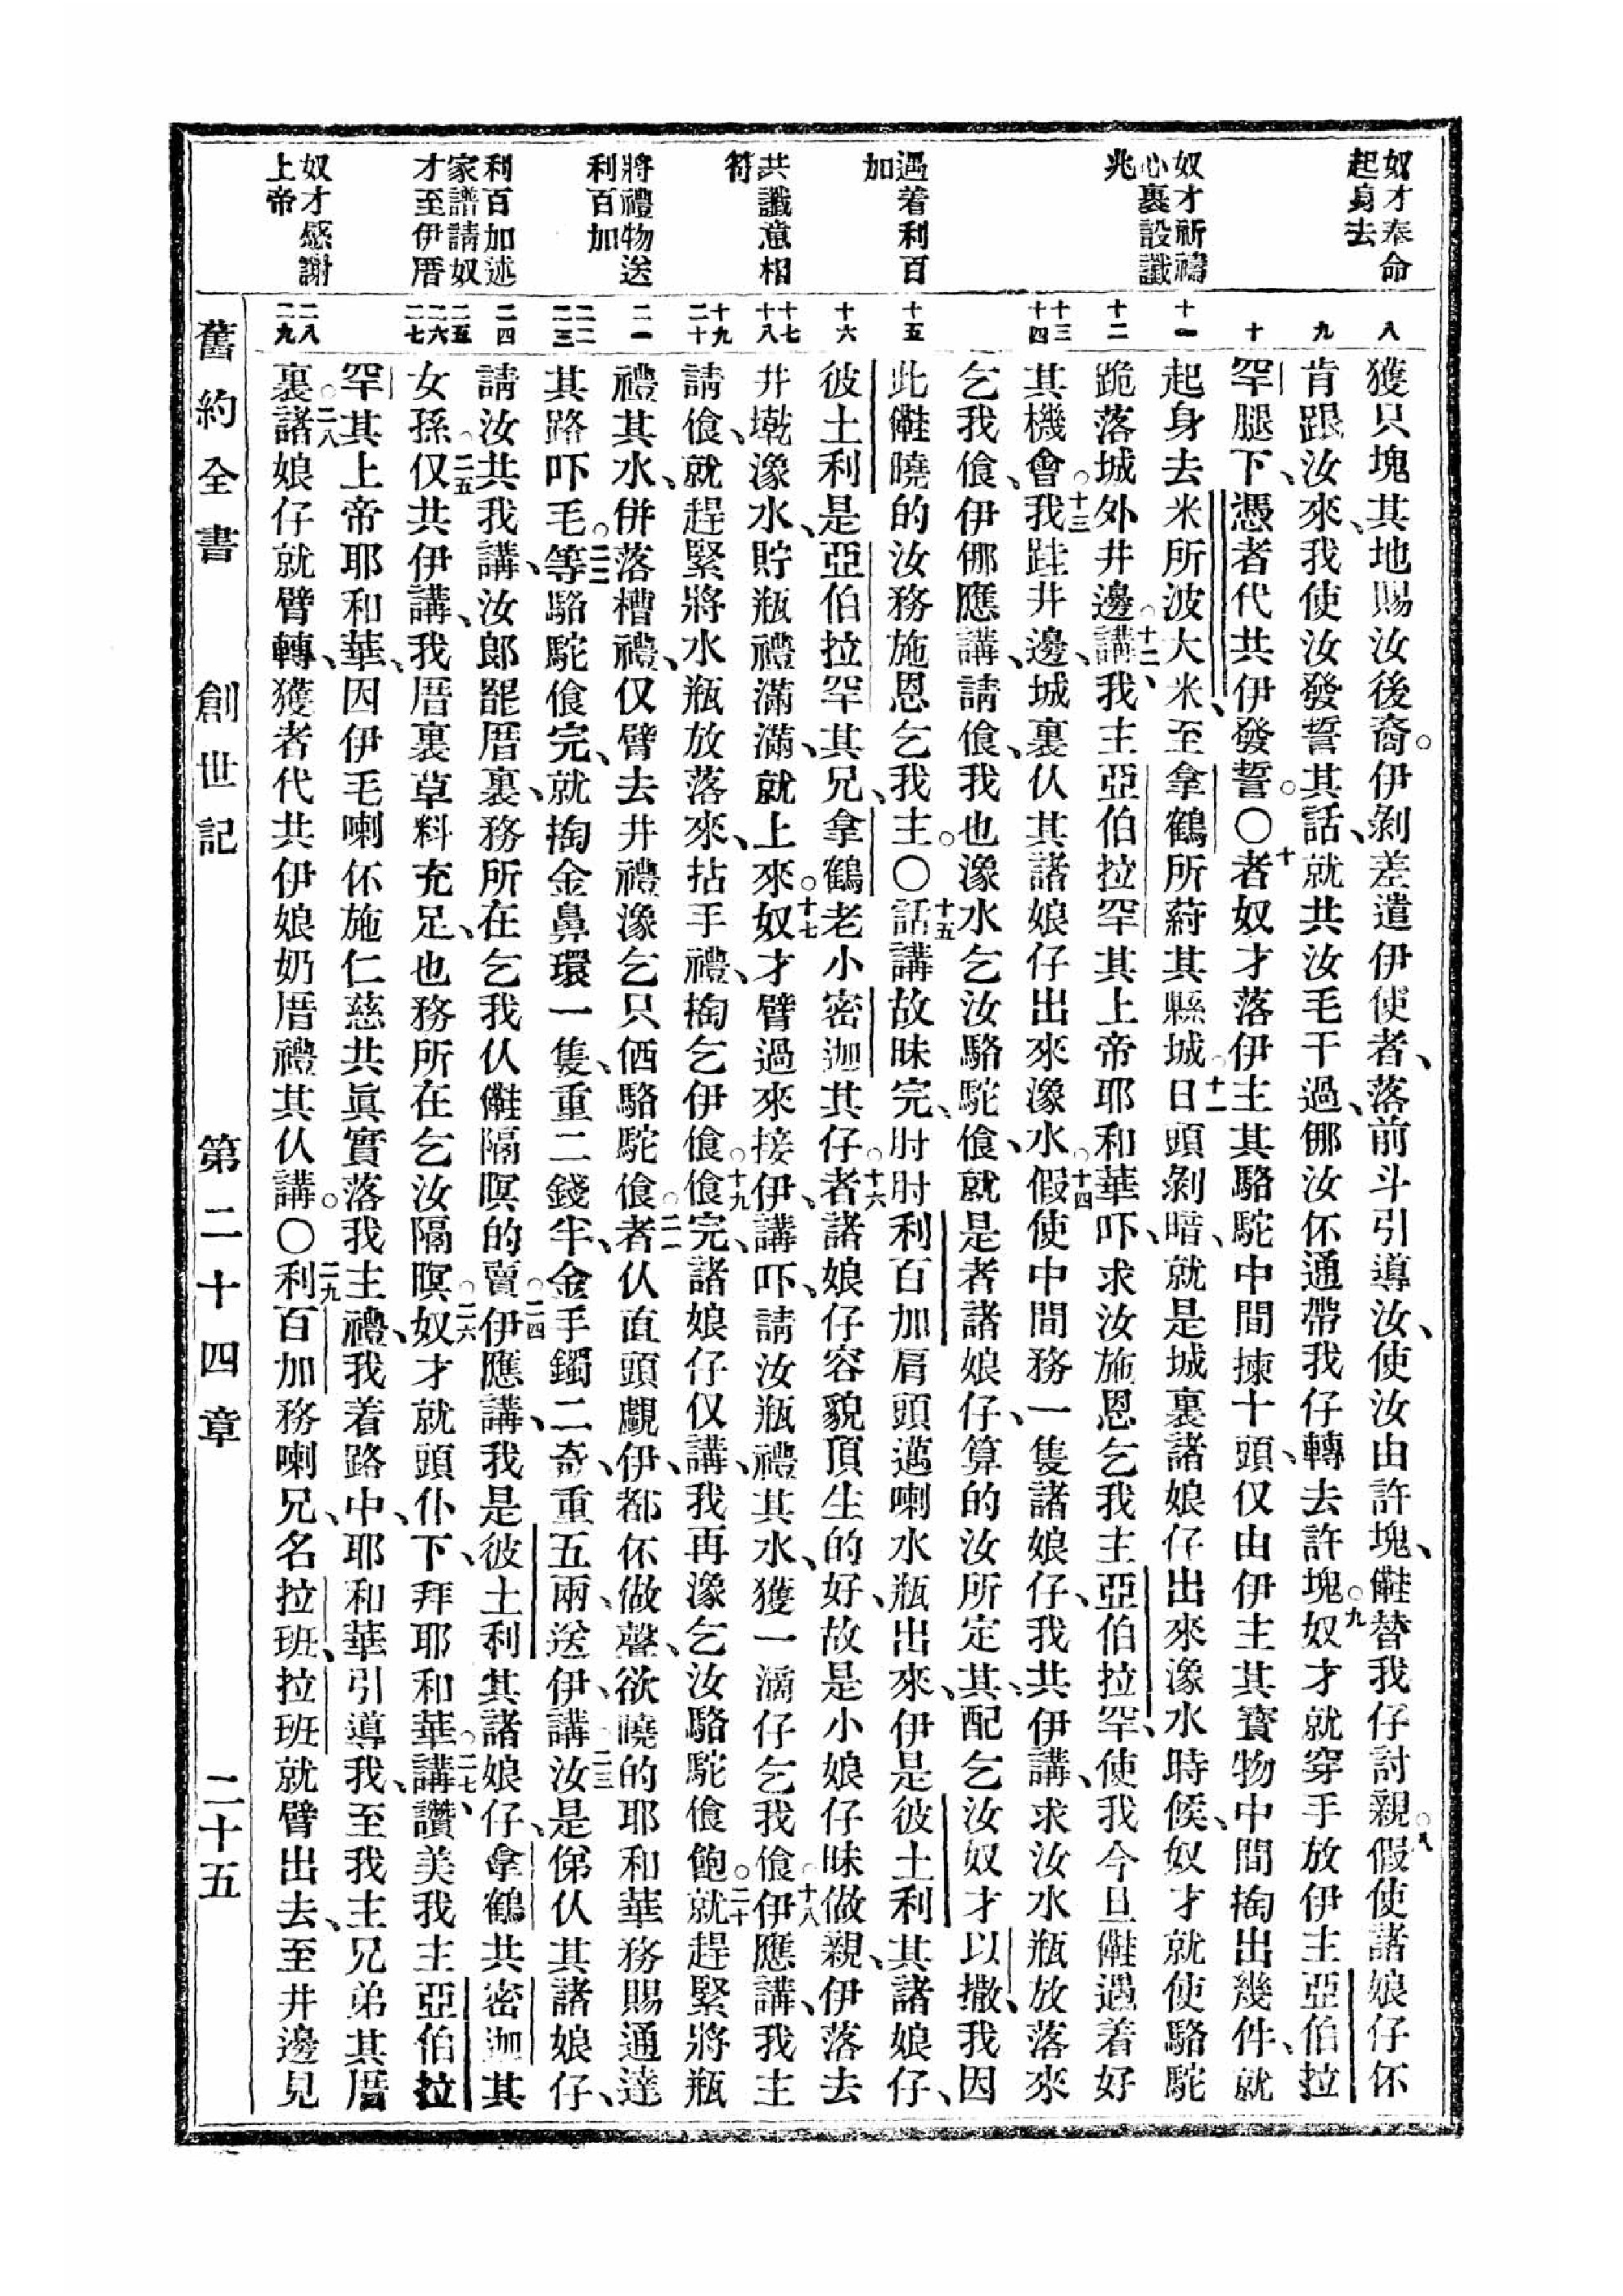 奴才奉命
起身去
奴才祈禱
心裏設讖
兆
遇着利百
加
共讖意相
符
將禮物送
利百加
利百加述
家譜請奴
才至伊厝
奴才感謝
上帝
八
九
十
十一
十二
十三
十四
十五
十六
十七
十八
十九
二十
二一
二二
二三
二四
二五
二六
二七
二八
二九
獲只塊其地賜汝後裔。伊剝差遣伊使者、落前斗引導汝、使汝由許塊、㒕替我仔討親。八假使諸娘仔伓
肯跟汝來、我使汝發誓其話、就共汝毛干過、㑚汝伓通帶我仔轉去許塊。九奴才就穿手放伊主亞伯拉
罕腿下、憑者代共伊發誓。〇十者奴才落伊主其駱駝中間揀十頭、仅由伊主其寶物中間掏出幾件、就
起身去米所波大米、至拿鶴所蒞其縣城。十一日頭剝暗、就是城裏諸娘仔出來潒水時候、奴才就使駱駝
跪落城外井邊。十二講、我主亞伯拉罕其上帝耶和華吓、求汝施恩乞我主亞伯拉罕、使我今旦㒕遇着好
其機會。十三我跬井邊、城裏仈其諸娘仔出來潒水。十四假使中間務一隻諸娘仔、我共伊講、求汝水瓶放落來
乞我飡、伊㑚應講、請飡、我也潒水乞汝駱駝飡、就是者諸娘仔、算的汝所定其、配乞汝奴才以撒、我因
此㒕曉的汝務施恩乞我主。〇十五話講故昧完、肘肘利百加肩頭邁喇水瓶出來、伊是彼土利其諸娘仔、
彼土利是亞伯拉罕其兄、拿鶴老小密迦其仔。十六者諸娘仔容貌頂生的好、故是小娘仔昧做親、伊落去
井墘潒水、貯瓶禮滿滿、就上來。十七奴才臂過來接伊、講吓、請汝瓶禮其水、獲一滴仔乞我飡。十八伊應講、我主
請飡、就趕緊將水瓶放落來、拈手禮、掏乞伊飡。十九飡完、諸娘仔仅講、我再潒乞汝駱駝飡飽。二十就趕緊將瓶
禮其水、併落槽禮、仅臂去井禮潒乞只㐁駱駝飡。二一者仈直頭覷伊、都伓做聲、欲曉的耶和華務賜通達
其路吓毛。二二等駱駝飡完、就掏金鼻環一隻、重二錢半、金手鐲二奇、重五兩、送伊、二三講汝是俤仈其諸娘仔、
請汝共我講、汝郎罷厝裏、務所在乞我仈㒕隔暝的賣。二四伊應講、我是彼土利其諸娘仔、拿鶴共密迦其
女孫。二五仅共伊講、我厝裏草料充足、也務所在乞汝隔暝。二六奴才就頭仆下、拜耶和華。二七講、讚美我主亞伯拉
罕其上帝耶和華、因伊毛喇伓施仁慈共眞實落我主禮、我着路中、耶和華引導我、至我主兄弟其厝
裏。二八諸娘仔就臂轉、獲者代共伊娘奶厝禮其仈講。〇二九利百加務喇兄、名拉班、拉班就臂出去、至井邊見
舊約全書 創世記 第二十四章 二十五